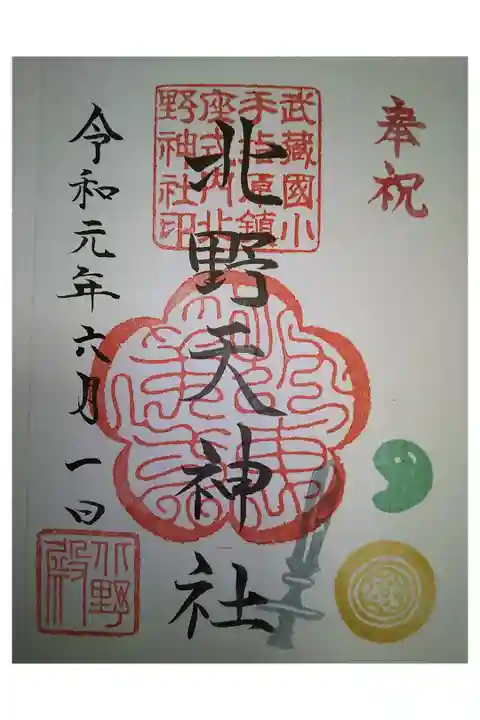 奉祝
武藏國小
手指原鎮
座式内北
野神社印
北野天神社
令和元年六月一日
北野